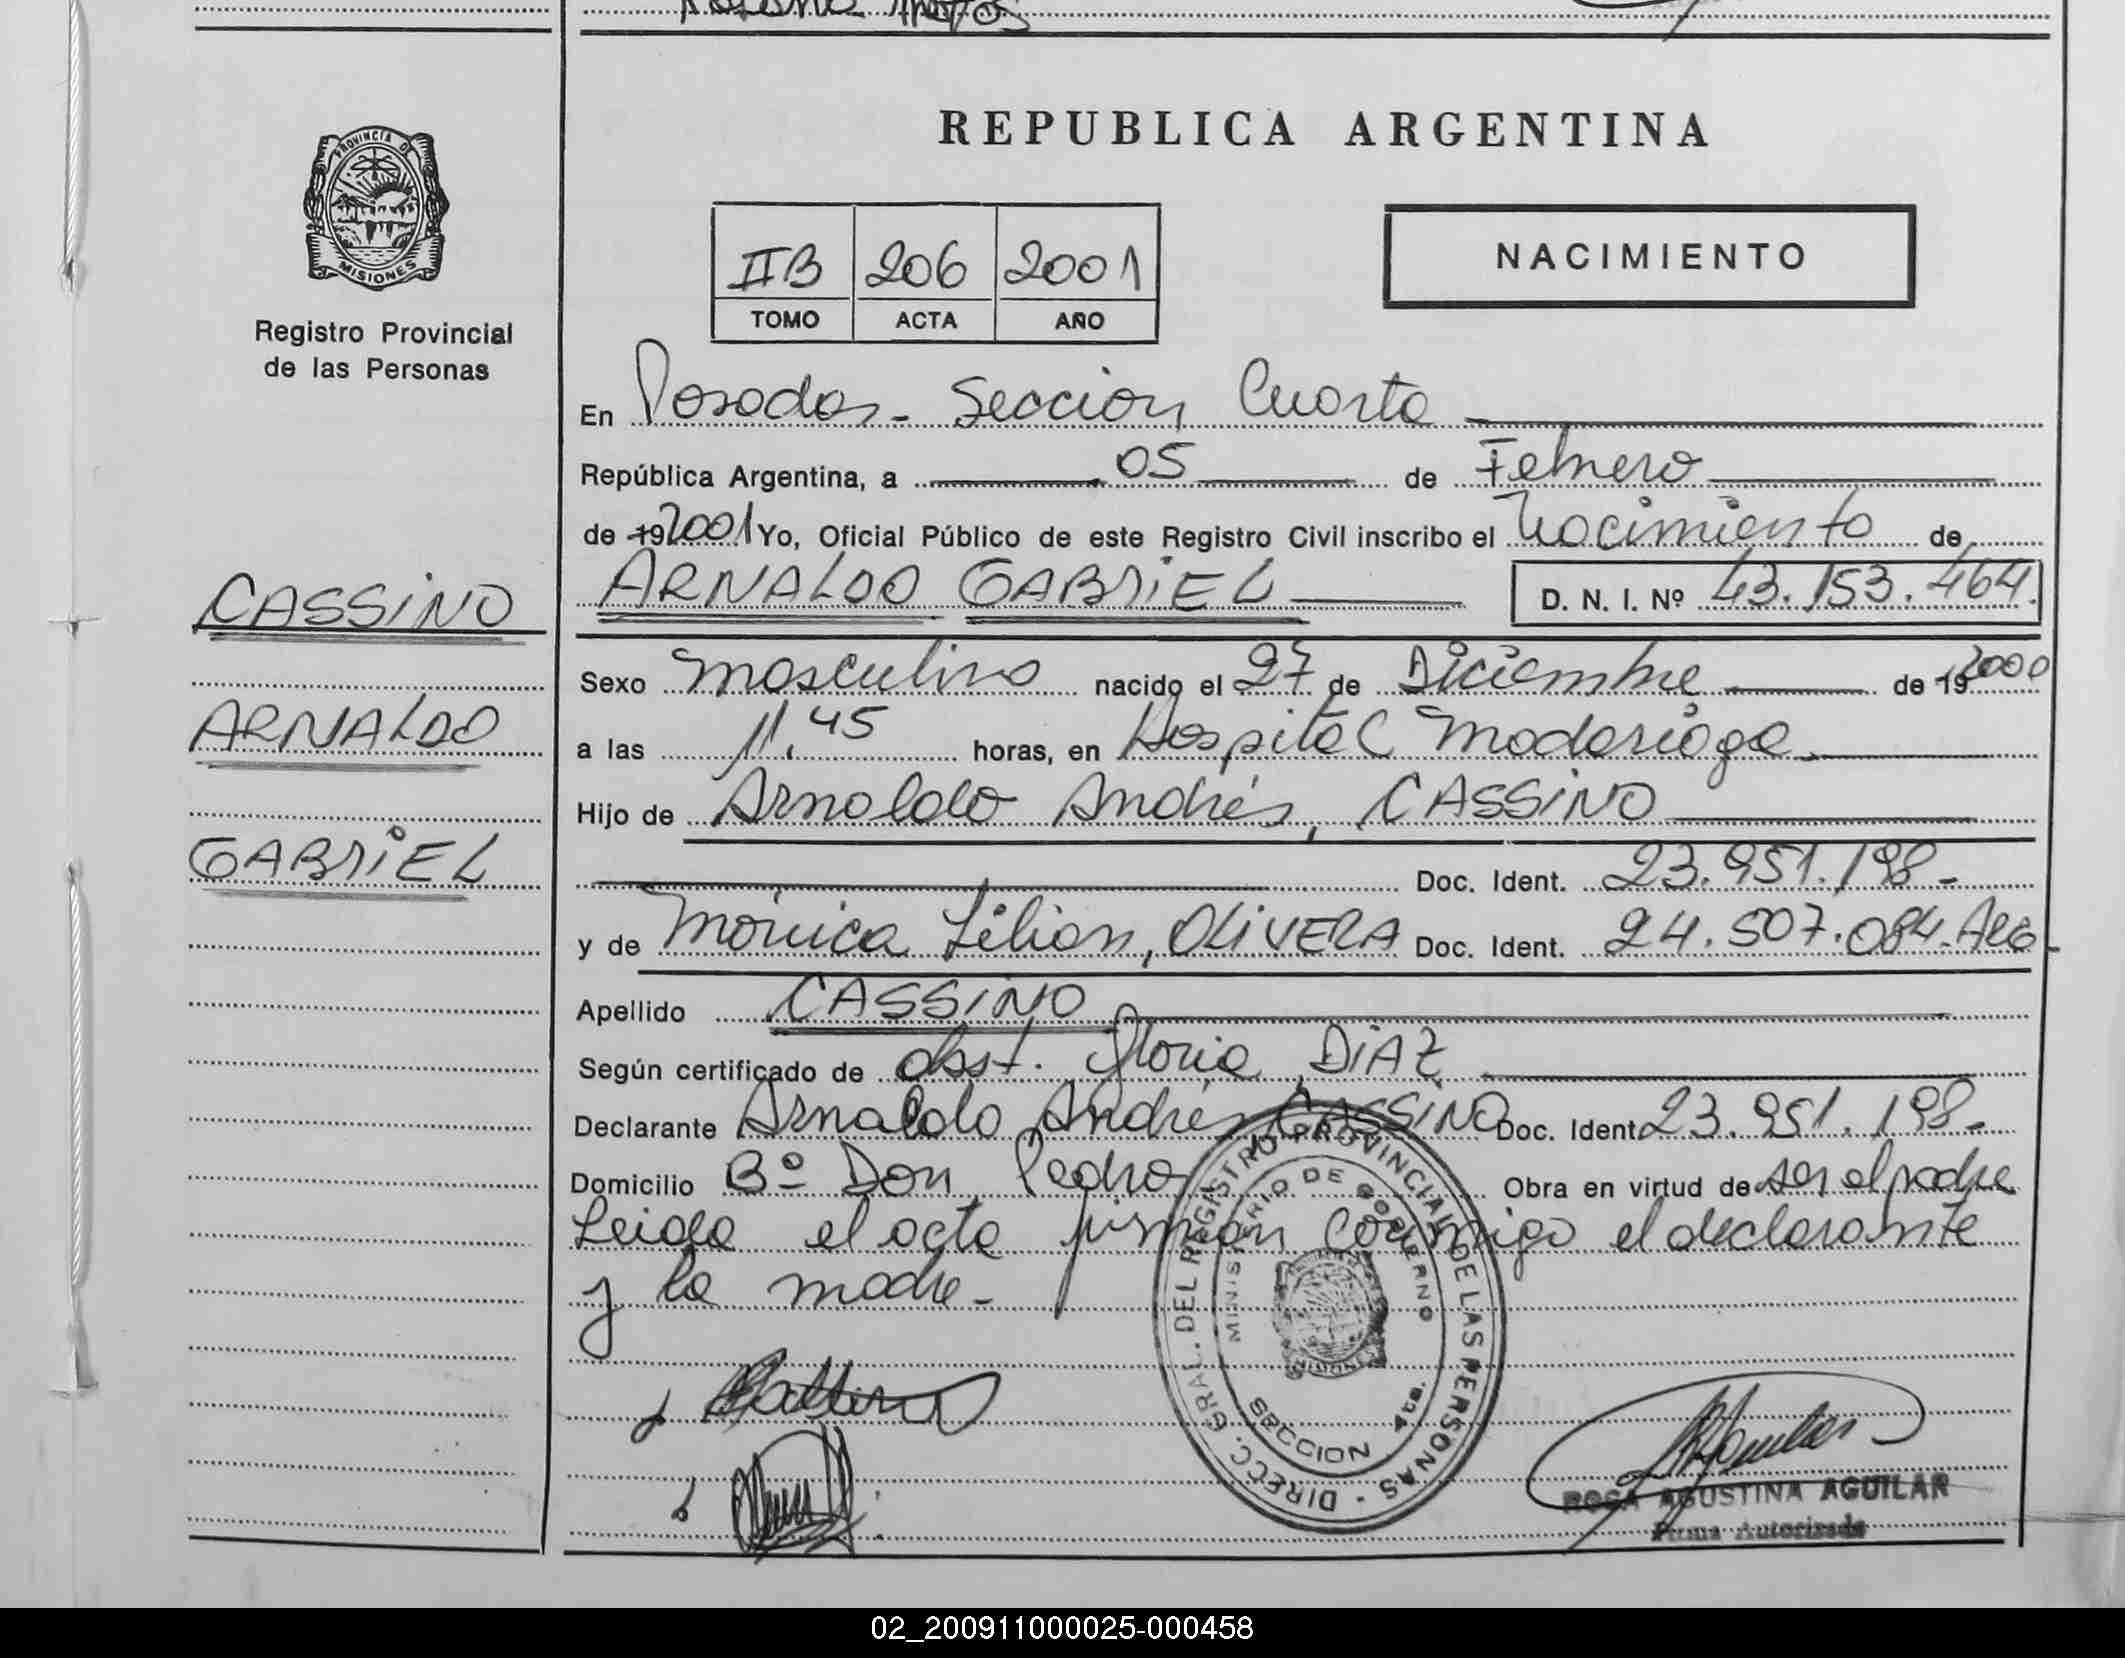 REPUBLICA ARGENTINA
PROVINCIA DE
MISIONES
Registro Provincial
de las Personas
IIB 206 2001
TOMO ACTA AÑO
NACIMIENTO
En Posadas - Sección Cuarta
República Argentina, a 05 de Febrero
de 19 2001 Yo, Oficial Público de este Registro Civil inscribo el Nacimiento de
CASSINO
ARNALDO GABRIEL D. N. I. Nº 43.153.464.
Sexo masculino nacido el 27 de Diciembre de 19 2000
ARNALDO
a las 11,45 horas, en Hospital Madariaga
Hijo de Arnaldo Andrés, CASSINO
GABRIEL
Doc. Ident. 23.951.198-
y de Mónica Lilian, OLIVERA Doc. Ident. 24.507.084-Arg-
Apellido CASSINO
Según certificado de obst. Gloria DIAZ
Declarante Arnaldo Andrés CASSINO Doc. Ident. 23.951.198-
Domicilio Bº Don Pedro Obra en virtud de ser el padre
Leida el acta firman conmigo el declarante
y la madre-
DIRECC. GRAL. DEL REGISTRO PROVINCIAL DE LAS PERSONAS -
MINISTERIO DE GOBIERNO
MISIONES
SECCION 4ta.
ROSA AGUSTINA AGUILAR
Firma Autorizada
02_200911000025-000458